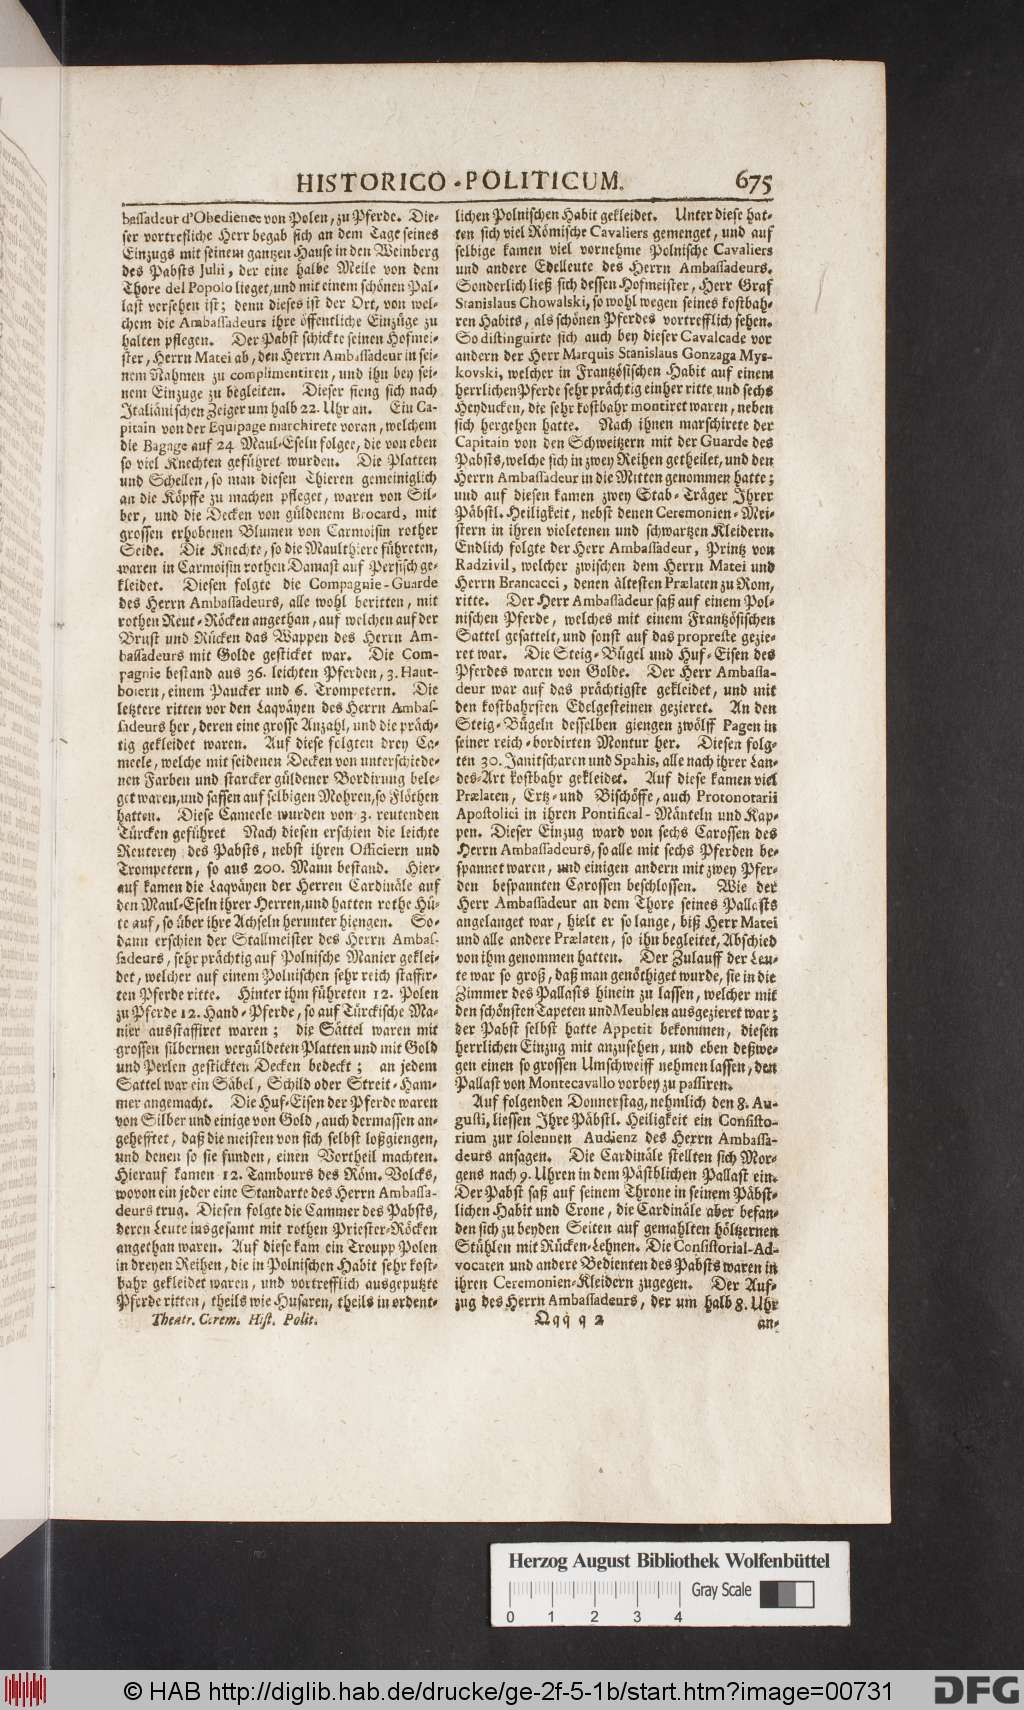 HISTORICO-POLITICUM. 675
bassadeur d'Obedience von Polen, zu Pferde. Die-
ser vortrefliche Herr begab sich an dem Tage seines
Einzugs mit seinem gantzen Hause in den Weinberg
des Pabsts Julii, der eine halbe Meile von dem
Thore del Popolo lieget, und mit einem schönen Pal-
last versehen ist; denn dieses ist der Ort, von wel-
chem die Ambassadeurs ihre öffentliche Einzüge zu
halten pflegen. Der Pabst schickte seinen Hofmei-
ster, Herrn Matei ab, den Herrn Ambassadeur in sei-
nem Nahmen zu complimentiren, und ihn bey sei-
nem Einzuge zu begleiten. Dieser fieng sich nach
Italiänischen Zeiger um halb 22. Uhr an. Ein Ca-
pitain von der Equipage marchirete voran, welchem
die Bagage auf 24 Maul-Eseln folgte, die von eben
so viel Knechten geführet wurden. Die Platten
und Schellen, so man diesen Thieren gemeiniglich
an die Köpffe zu machen pfleget, waren von Sil-
ber, und die Decken von güldenem Brocard, mit
grossen erhobenen Blumen von Carmoisin rother
Seide. Die Knechte, so die Maulthiere führeten,
waren in Carmoisin rothen Damast auf Persisch ge-
kleidet. Diesen folgte die Compagnie-Guarde
des Herrn Ambassadeurs, alle wohl beritten, mit
rothen Reut-Röcken angethan, auf welchen auf der
Brust und Rücken das Wappen des Herrn Am-
bassadeurs mit Golde gesticket war. Die Com-
pagnie bestand aus 36. leichten Pferden, 3. Haut-
boiern, einem Paucker und 6. Trompetern. Die
letztere ritten vor den Laqväyen des Herrn Ambas-
sadeurs her, deren eine grosse Anzahl, und die präch-
tig gekleidet waren. Auf diese folgten drey Ca-
meele, welche mit seidenen Decken von unterschiede-
nen Farben und starcker güldener Bordirung bele-
get waren, und sassen auf selbigen Mohren, so Flöthen
hatten. Diese Cameele wurden von 3. reutenden
Türcken geführet Nach diesen erschien die leichte
Reuterey des Pabsts, nebst ihren Officiern und
Trompetern, so aus 200. Mann bestand. Hier-
auf kamen die Laqväyen der Herren Cardinäle auf
den Maul-Eseln ihrer Herren, und hatten rothe Hü-
te auf, so über ihre Achseln herunter hiengen. So-
dann erschien der Stallmeister des Herrn Ambas-
sadeurs, sehr prächtig auf Polnische Manier geklei-
det, welcher auf einem Polnischen sehr reich staffir-
ten Pferde ritte. Hinter ihm führeten 12. Polen
zu Pferde 12. Hand-Pferde, so auf Türckische Ma-
nier ausstaffiret waren; die Sättel waren mit
grossen silbernen vergüldeten Platten und mit Gold
und Perlen gestickten Decken bedeckt; an jedem
Sattel war ein Säbel, Schild oder Streit-Ham-
mer angemacht. Die Huf-Eisen der Pferde waren
von Silber und einige von Gold, auch dermassen an-
gehefftet, daß die meisten von sich selbst loßgiengen,
und denen so sie funden, einen Vortheil machten.
Hierauf kamen 12. Tambours des Röm. Volcks,
wovon ein jeder eine Standarte des Herrn Ambassa-
deurs trug. Diesen folgte die Cammer des Pabsts,
deren Leute insgesamt mit rothen Priester-Röcken
angethan waren. Auf diese kam ein Troupp Polen
in dreyen Reihen, die in Polnischen Habit sehr kost-
bahr gekleidet waren, und vortrefflich ausgeputzte
Pferde ritten, theils wie Husaren, theils in ordent-
Theatr. Cerem. Hist. Polit.
lichen Polnischen Habit gekleidet. Unter diese hat-
ten sich viel Römische Cavaliers gemenget, und auf
selbige kamen viel vornehme Polnische Cavaliers
und andere Edelleute des Herrn Ambassadeurs.
Sonderlich ließ sich dessen Hofmeister, Herr Graf
Stanislaus Chowalski, so wohl wegen seines kostbah-
ren Habits, als schönen Pferdes vortrefflich sehen.
So distinguirte sich auch bey dieser Cavalcade vor
andern der Herr Marquis Stanislaus Gonzaga Mys-
kovski, welcher in Frantzösischen Habit auf einem
herrlichen Pferde sehr prächtig einher ritte und sechs
Heyducken, die sehr kostbahr montiret waren, neben
sich hergehen hatte. Nach ihnen marschirete der
Capitain von den Schweitzern mit der Guarde des
Pabsts, welche sich in zwey Reihen getheilet, und den
Herrn Ambassadeur in die Mitten genommen hatte;
und auf diesen kamen zwey Stab-Träger Ihrer
Päbstl. Heiligkeit, nebst denen Ceremonien-Mei-
stern in ihren violetenen und schwartzen Kleidern.
Endlich folgte der Herr Ambassadeur, Printz von
Radzivil, welcher zwischen dem Herrn Matei und
Herrn Brancacci, denen ältesten Prælaten zu Rom,
ritte. Der Herr Ambassadeur saß auf einem Pol-
nischen Pferde, welches mit einem Frantzösischen
Sattel gesattelt, und sonst auf das propreste gezie-
ret war. Die Steig-Bügel und Huf-Eisen des
Pferdes waren von Golde. Der Herr Ambassa-
deur war auf das prächtigste gekleidet, und mit
den kostbahrsten Edelgesteinen gezieret. An den
Steig-Bügeln desselben giengen zwölff Pagen in
seiner reich-bordirten Montur her. Diesen folg-
ten 30. Janitscharen und Spahis, alle nach ihrer Lan-
des-Art kostbahr gekleidet. Auf diese kamen viel
Prælaten, Ertz- und Bischöffe, auch Protonotarii
Apostolici in ihren Pontifical-Mänteln und Kap-
pen. Dieser Einzug ward von sechs Carossen des
Herrn Ambassadeurs, so alle mit sechs Pferden be-
spannet waren, und einigen andern mit zwey Pfer-
den bespannten Carossen beschlossen. Wie der
Herr Ambassadeur an dem Thore seines Pallasts
angelanget war, hielt er so lange, biß Herr Matei
und alle andere Prælaten, so ihn begleitet, Abschied
von ihm genommen hatten. Der Zulauff der Leu-
te war so groß, daß man genöthiget wurde, sie in die
Zimmer des Pallasts hinein zu lassen, welcher mit
den schönsten Tapeten und Meublen ausgezieret war;
der Pabst selbst hatte Appetit bekommen, diesen
herrlichen Einzug mit anzusehen, und eben deßwe-
gen einen so grossen Umschweiff nehmen lassen, den
Pallast von Montecavallo vorbey zu passiren.
Auf folgenden Donnerstag, nehmlich den 8. Au-
gusti, liessen Ihre Päbstl. Heiligkeit ein Consisto-
rium zur solennen Audienz des Herrn Ambassa-
deurs ansagen. Die Cardinäle stellten sich Mor-
gens nach 9. Uhren in dem Pästblichen Pallast ein.
Der Pabst saß auf seinem Throne in seinem Päbst-
lichen Habit und Crone, die Cardinäle aber befan-
den sich zu beyden Seiten auf gemahlten höltzernen
Stühlen mit Rücken-Lehnen. Die Consistorial-Ad-
vocaten und andere Bedienten des Pabsts waren in
ihren Ceremonien-Kleidern zugegen. Der Auf-
zug des Herrn Ambassadeurs, der um halb 8. Uhr
Qqq q 2
an-
Herzog August Bibliothek Wolfenbüttel
0 1 2 3 4
Gray Scale
© HAB http://diglib.hab.de/drucke/ge-2f-5-1b/start.htm?image=00731
DFG